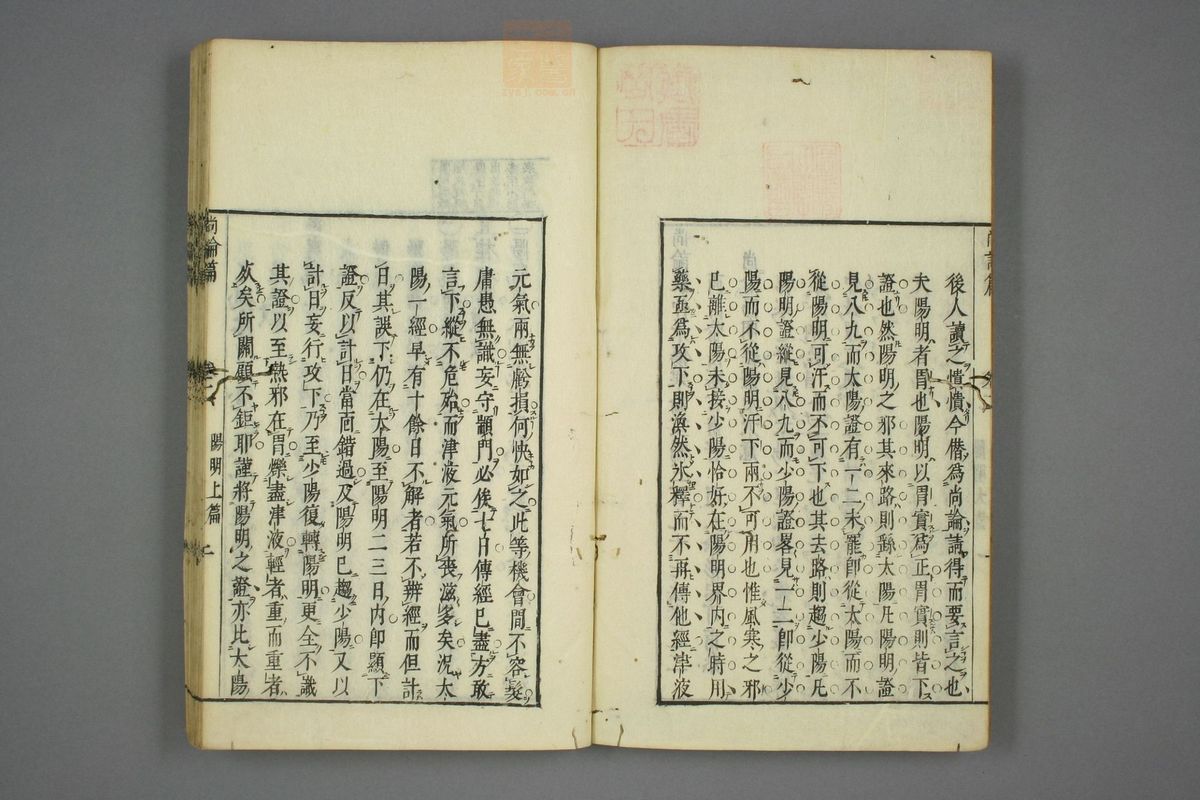 後人讀之憒憒今僣爲尚論請得而要言之也
夫陽明者胃也陽明以胃實爲正胃實則皆下
證也然陽明之邪其來路則繇太陽凡陽明證
見八九而太陽證有一二未罷卽從太陽而不
從陽明可汗而不可下也其去路則趨少陽凡
陽明證縱見八九而少陽證畧見一二卽從少
陽而不從陽明汗下兩不可用也惟風寒之邪
已離太陽未接少陽恰好在陽明界内之時用
藥亟爲攻下則渙然氷釋而不再傳他經津液
元氣兩無虧損何快如之此等機會間不容髮
庸愚無識妄守顓門必俟七日傳經已盡方敢
言下縱不危殆而津液元氣所喪滋多矣況太
陽一經早有十餘日不解者若不辨經而但計
日其誤下仍在太陽至陽明二三日内卽顯下
證反以計日當面錯過及陽明已趨少陽又以
計日妄行攻下乃至少陽復轉陽明更全不識
其證以至熱邪在胃爍盡津液輕者重而重者
死矣所關顧不鉅耶謹將陽明之證亦比太陽
尚論篇
卷二
陽明上篇
二